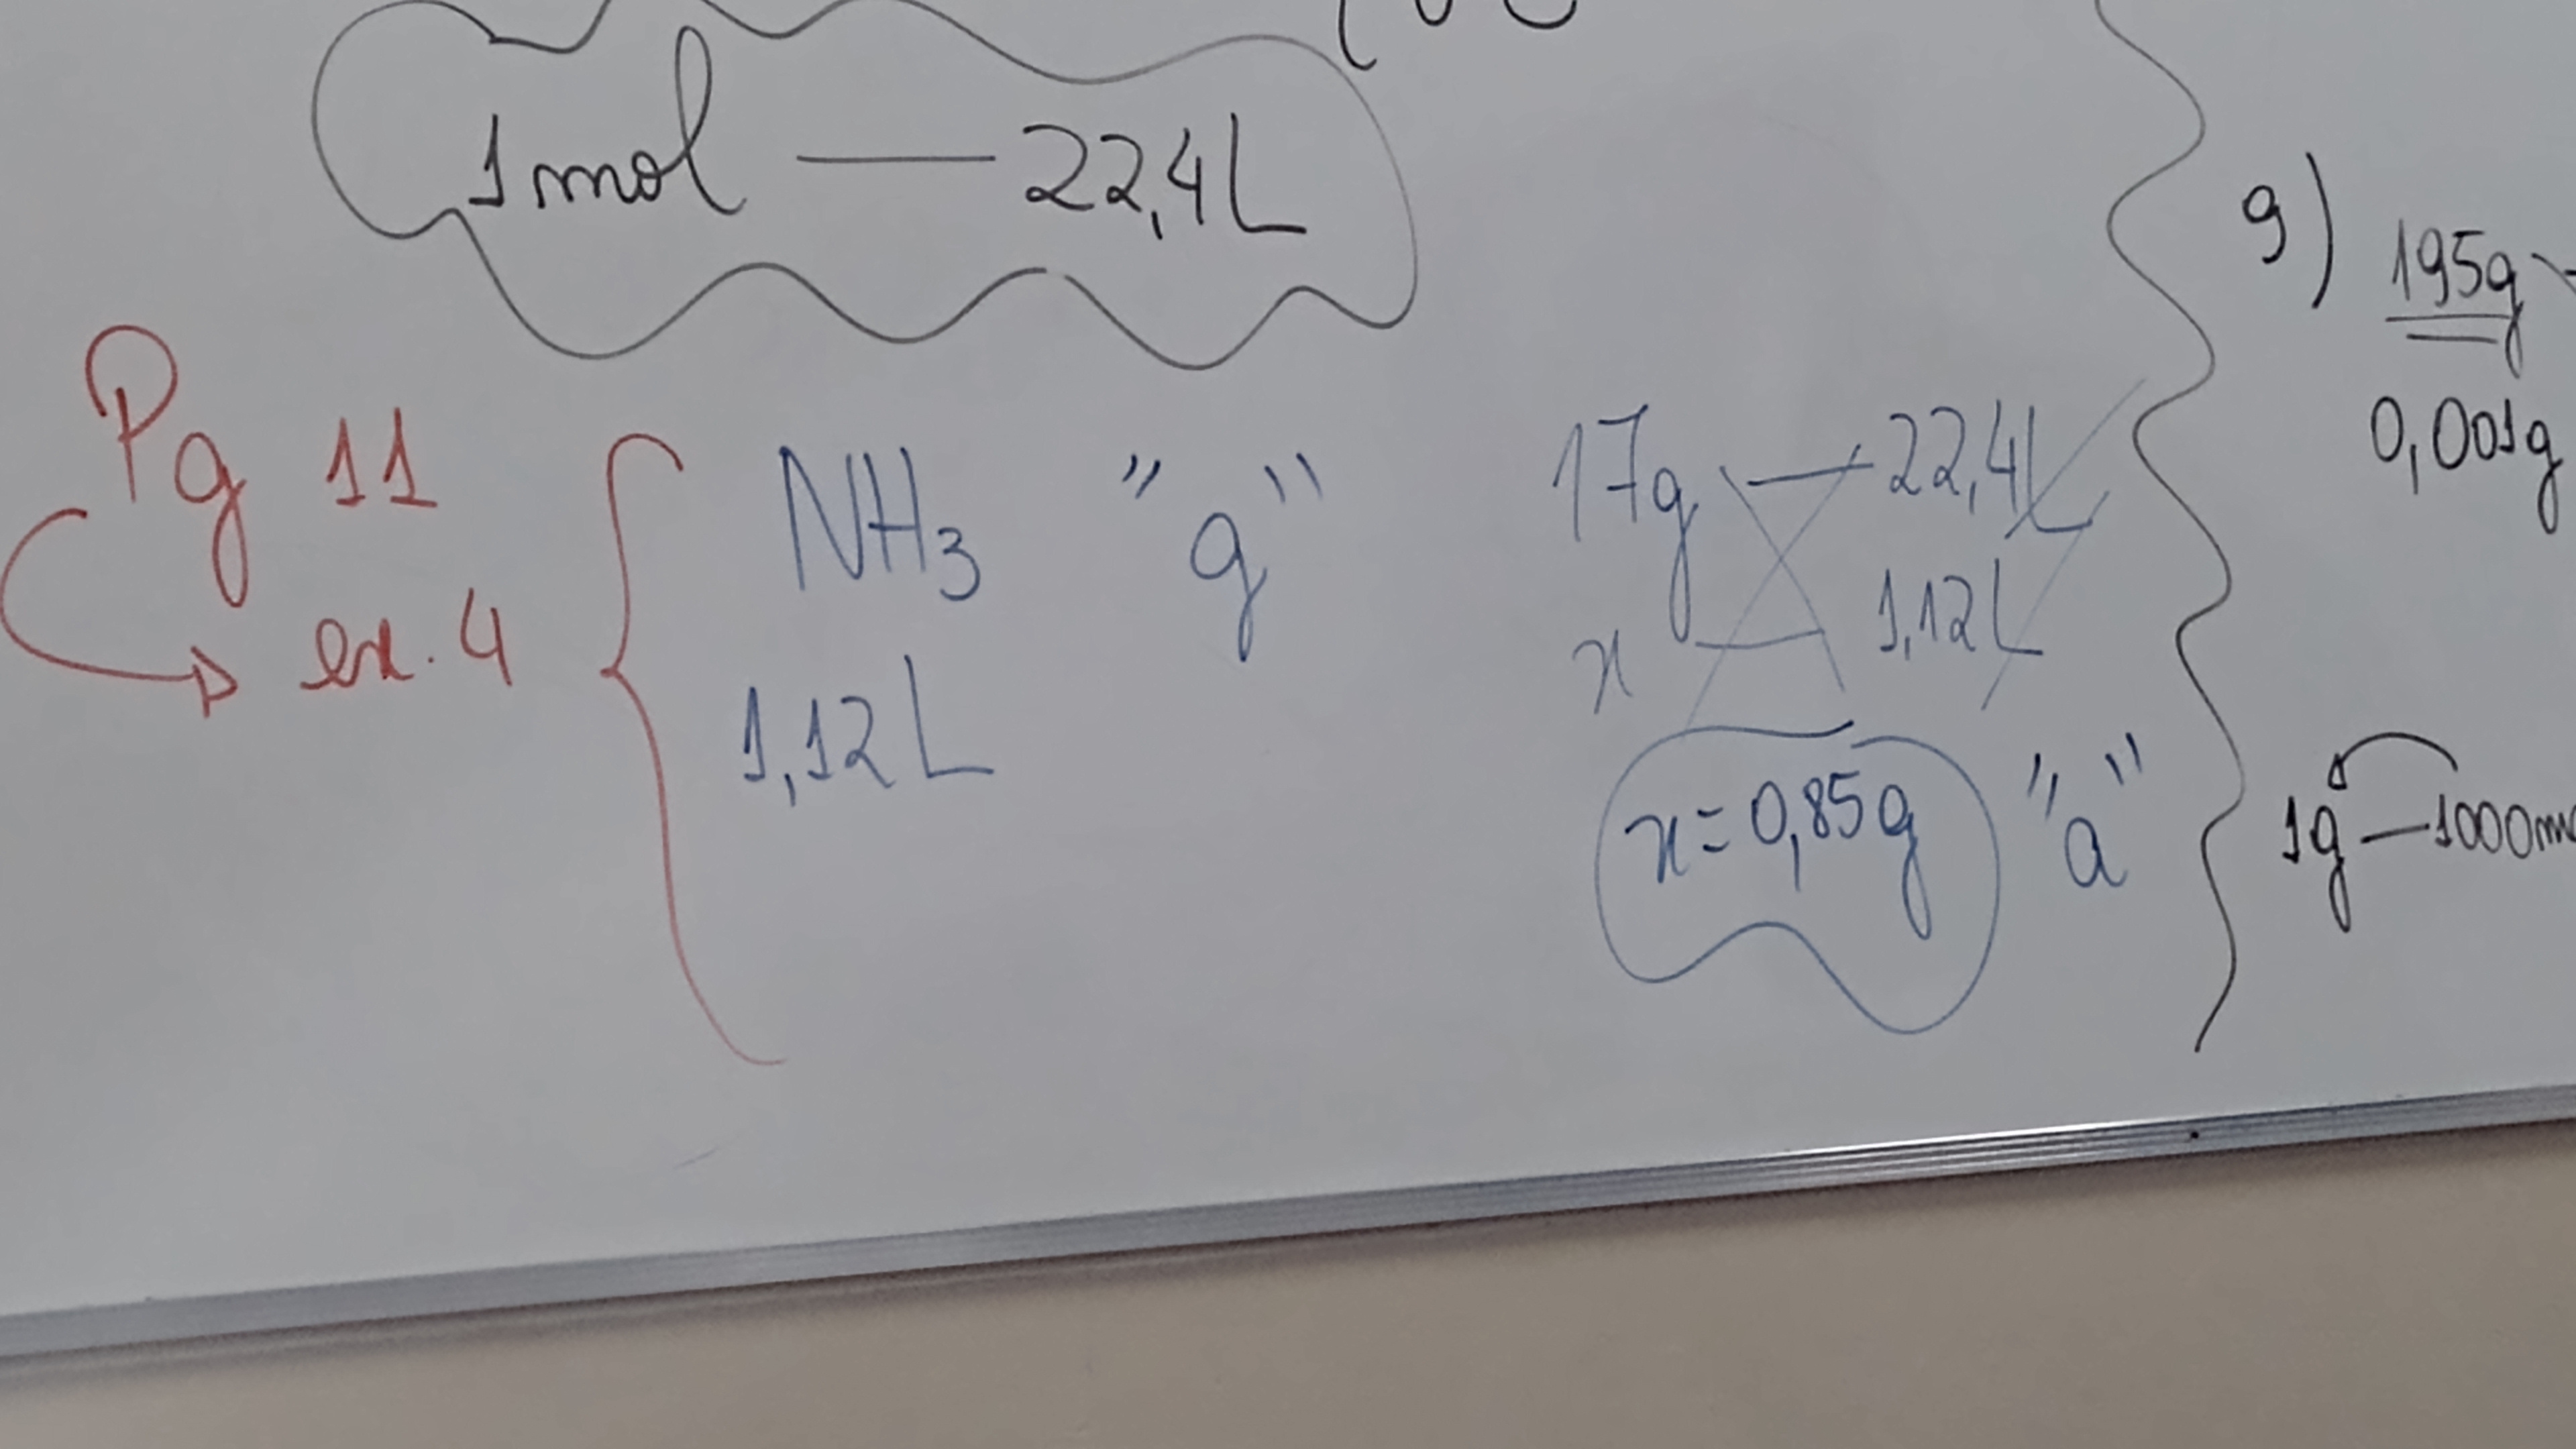 1 mol — 22,4L
Pg 11
ex. 4
NH3 "g"
1,12 L
17g — 22,4L
x — 1,12L
x = 0,85g "a"
9) 195g
0,001g
1g — 1000m